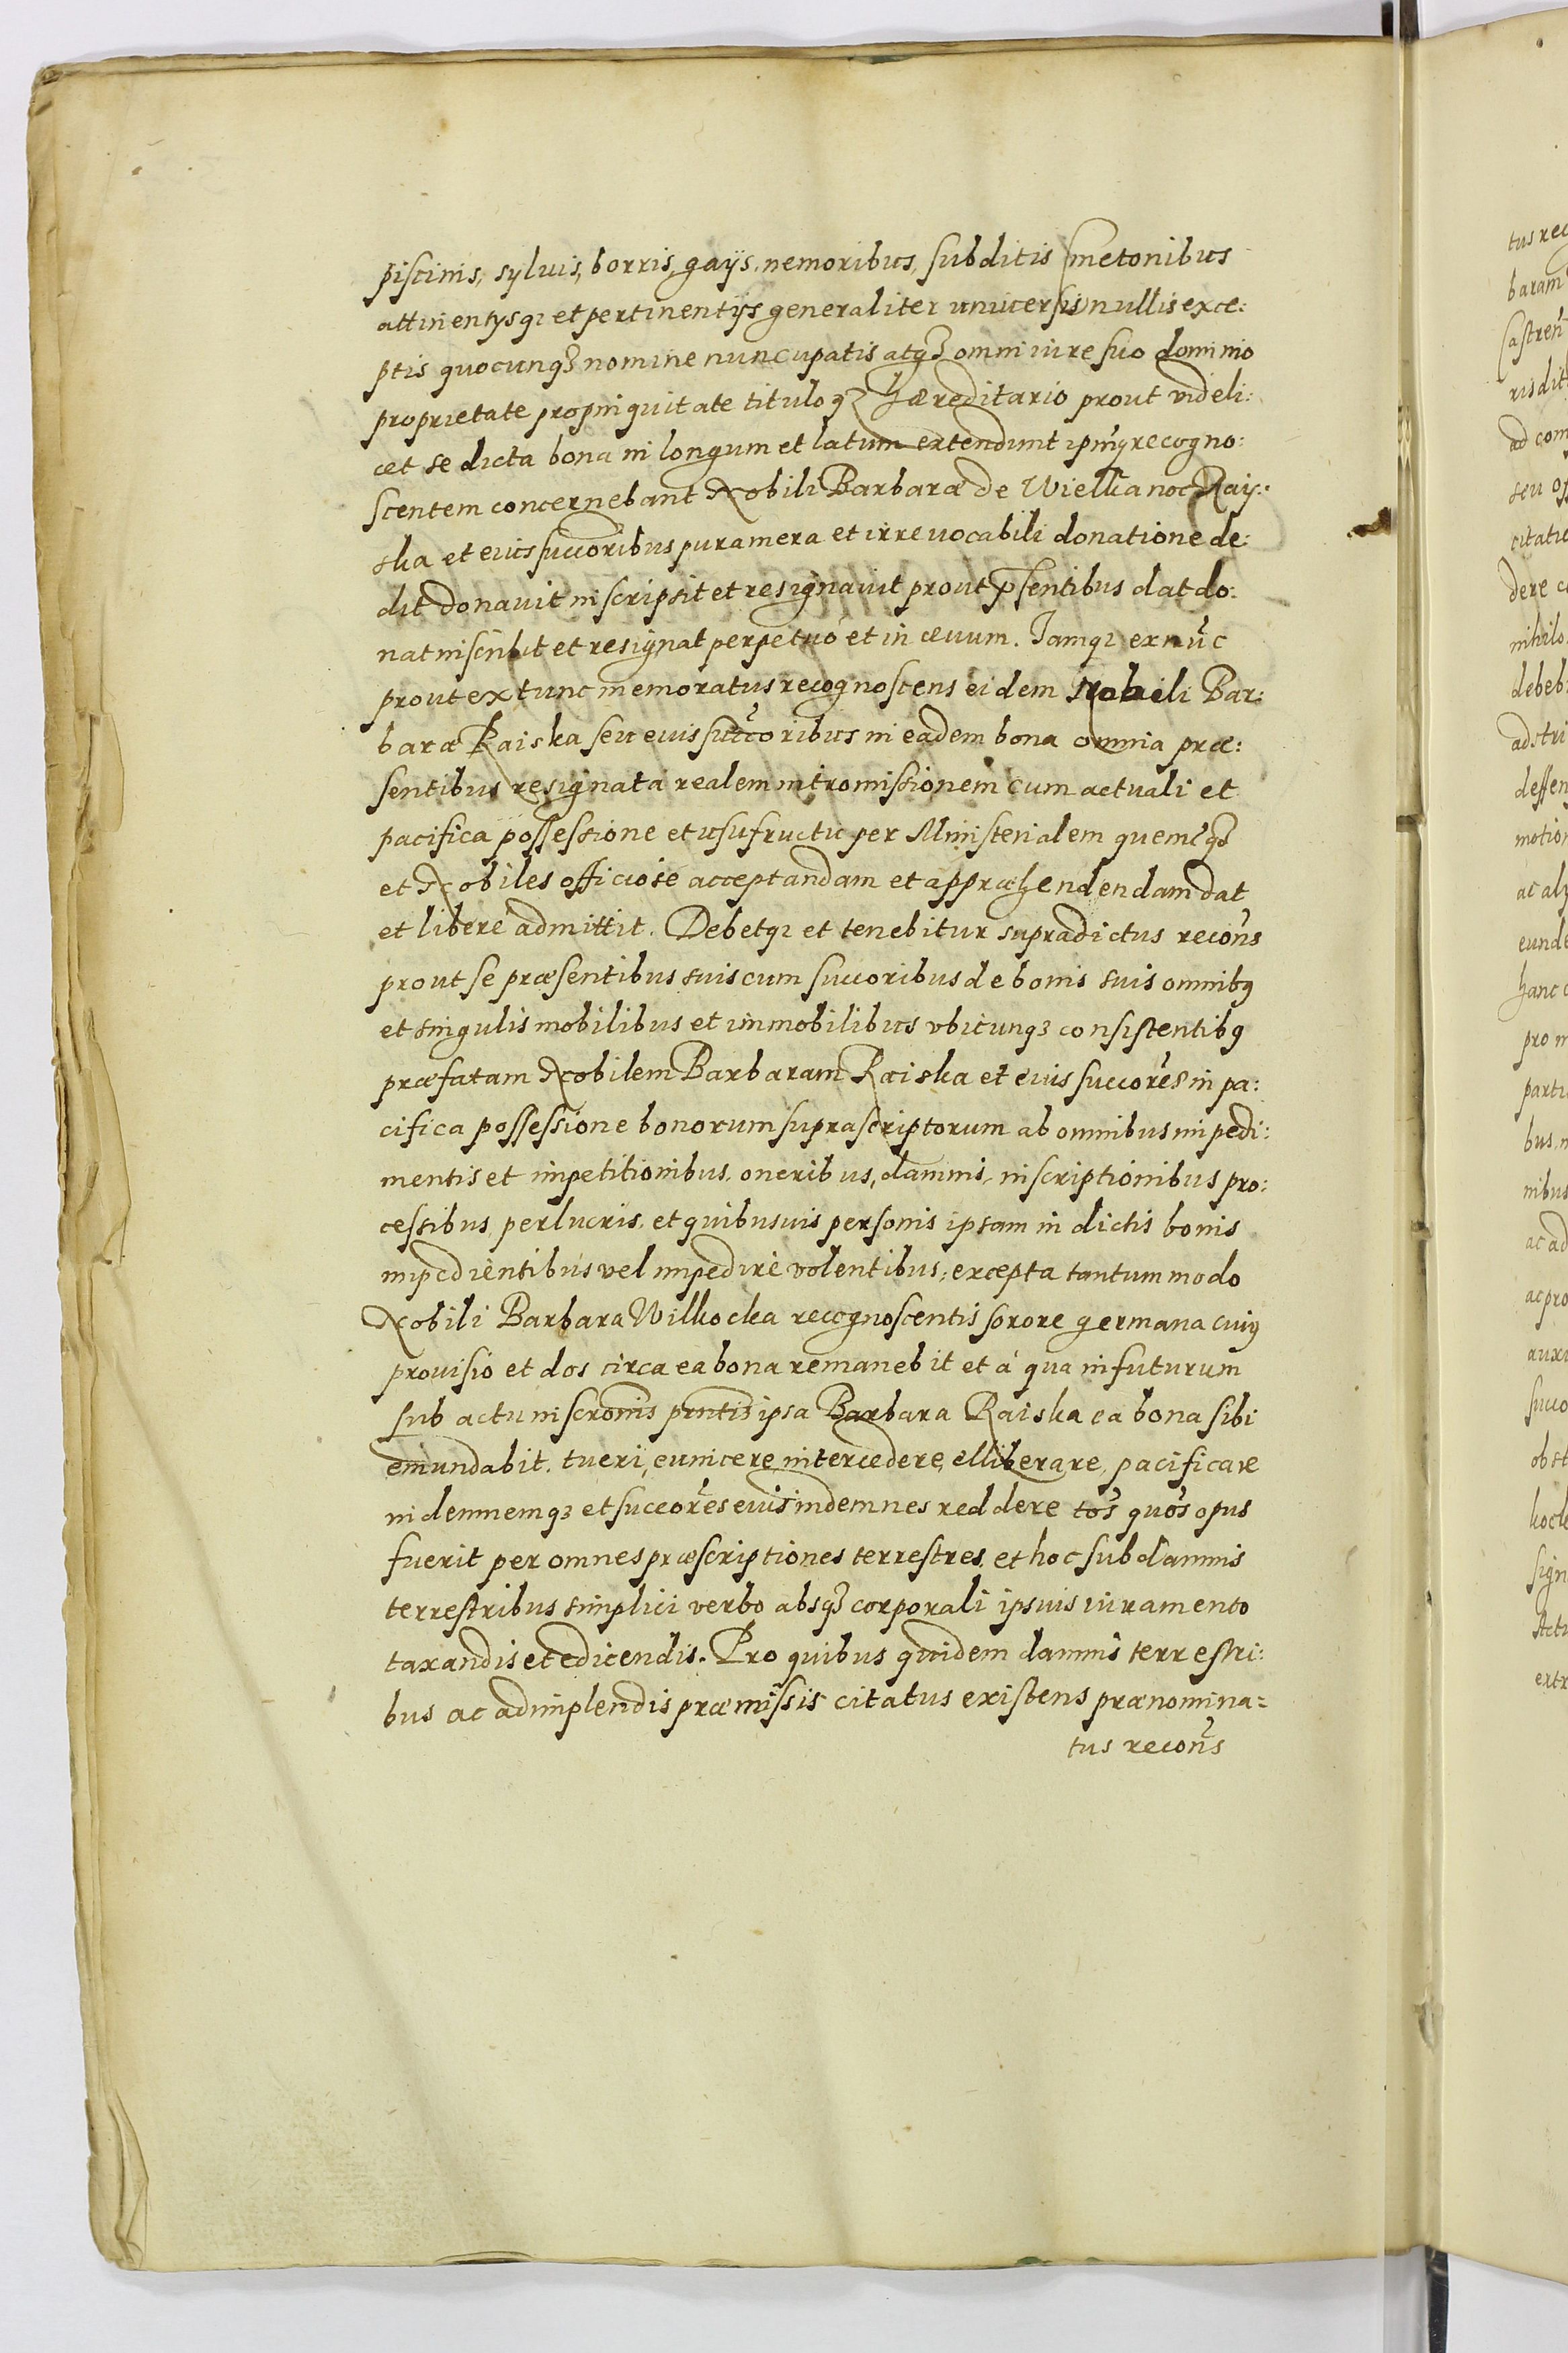 piscinis, sylvis, borris, gayis, nemoribus, subditis smetonibus
attinentysq3 et pertinentijs generaliter universis nullis exce:
ptis quocunq3 nomine nuncupatis atq3 omni iure suo dominio
proprietate propinquitate tituloq3 Hæreditario prout videli:
cet se dicta bona in longum et latum extendunt ipmq3 recogno:
scentem concernebant Nobili Barbaræ de Wielkanoc Ray:
ska et eius succoribus pura mera et irrevocabili donatione de:
dit donavit inscripsit et resignavit prout pſentibus dat do:
nat inscribit et resignat perpetuò et in ævum. Iamq3 ex nu͂c
prout ex tunc memoratus recognoscens eidem Nobili Bar:
baræ Raiska seu eius succoribus in eadem bona omnia præ:
sentibus resignata realem intromissionem cum actuali et
pacifica possessione et usufructu per Ministerialem quemcq3
et Nobiles officiose acceptandam et appræhendendam dat
et libere admittit. Debetq3 et tenebitur supradictus recon͂s
prout se præsentibus suis cum succoribus de bonis suis omnibq
et singulis mobilibus et immobilibus ubicunq3 consistentibq
præfatam Nobilem Barbaram Raiska et eius succores in pa:
cifica possessione bonorum suprascriptorum ab omnibus impedi:
mentis et impetitionibus, oneribus, damnis, inscriptionibus pro:
cessibus perlucris, et quibusvis personis ipsam in dictis bonis
impedientibus vel impedire volentibus, excepta tantummodo
Nobili Barbara Wilkocka recognoscentis sorore germana cuiq
provisio et dos circa ea bona remanebit et à qua in futurum
sub actu inscronis pntis ipsa Barbara Raiska ea bona sibi
emundabit. tueri, evincere, intercedere, elliberare, pacificare
indemnemq3 et succores eius indemnes reddere to͂s quo͂s opus
fuerit per omnes præscriptiones terrestres, et hoc sub damnis
terrestribus simplici verbo absq3 corporali ipsius iuramento
taxandis et edicendis. Pro quibus quidem damnis terrestri:
bus ac adimplendis præmissis citatus existens prænomina=
tus recon͂s